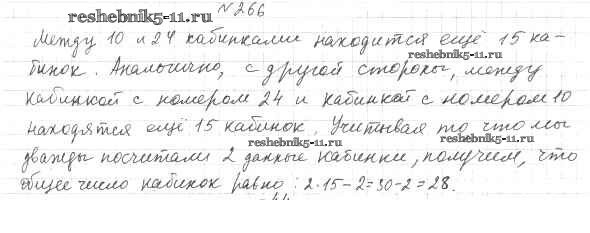 №266
reshebnik5-11.ru
Между 10 и 24 кабинками находится ещё 15 ка-
reshebnik5-11.ru
бинок. Аналогично, с другой стороны, между
кабинкой с номером 24 и кабинкой с номером 10
находятся ещё 15 кабинок. Учитывая то что мы
reshebnik5-11.ru
дважды посчитали 2 данные кабинки, получим, что
общее число кабинок равно: 2·15-2=30-2=28.